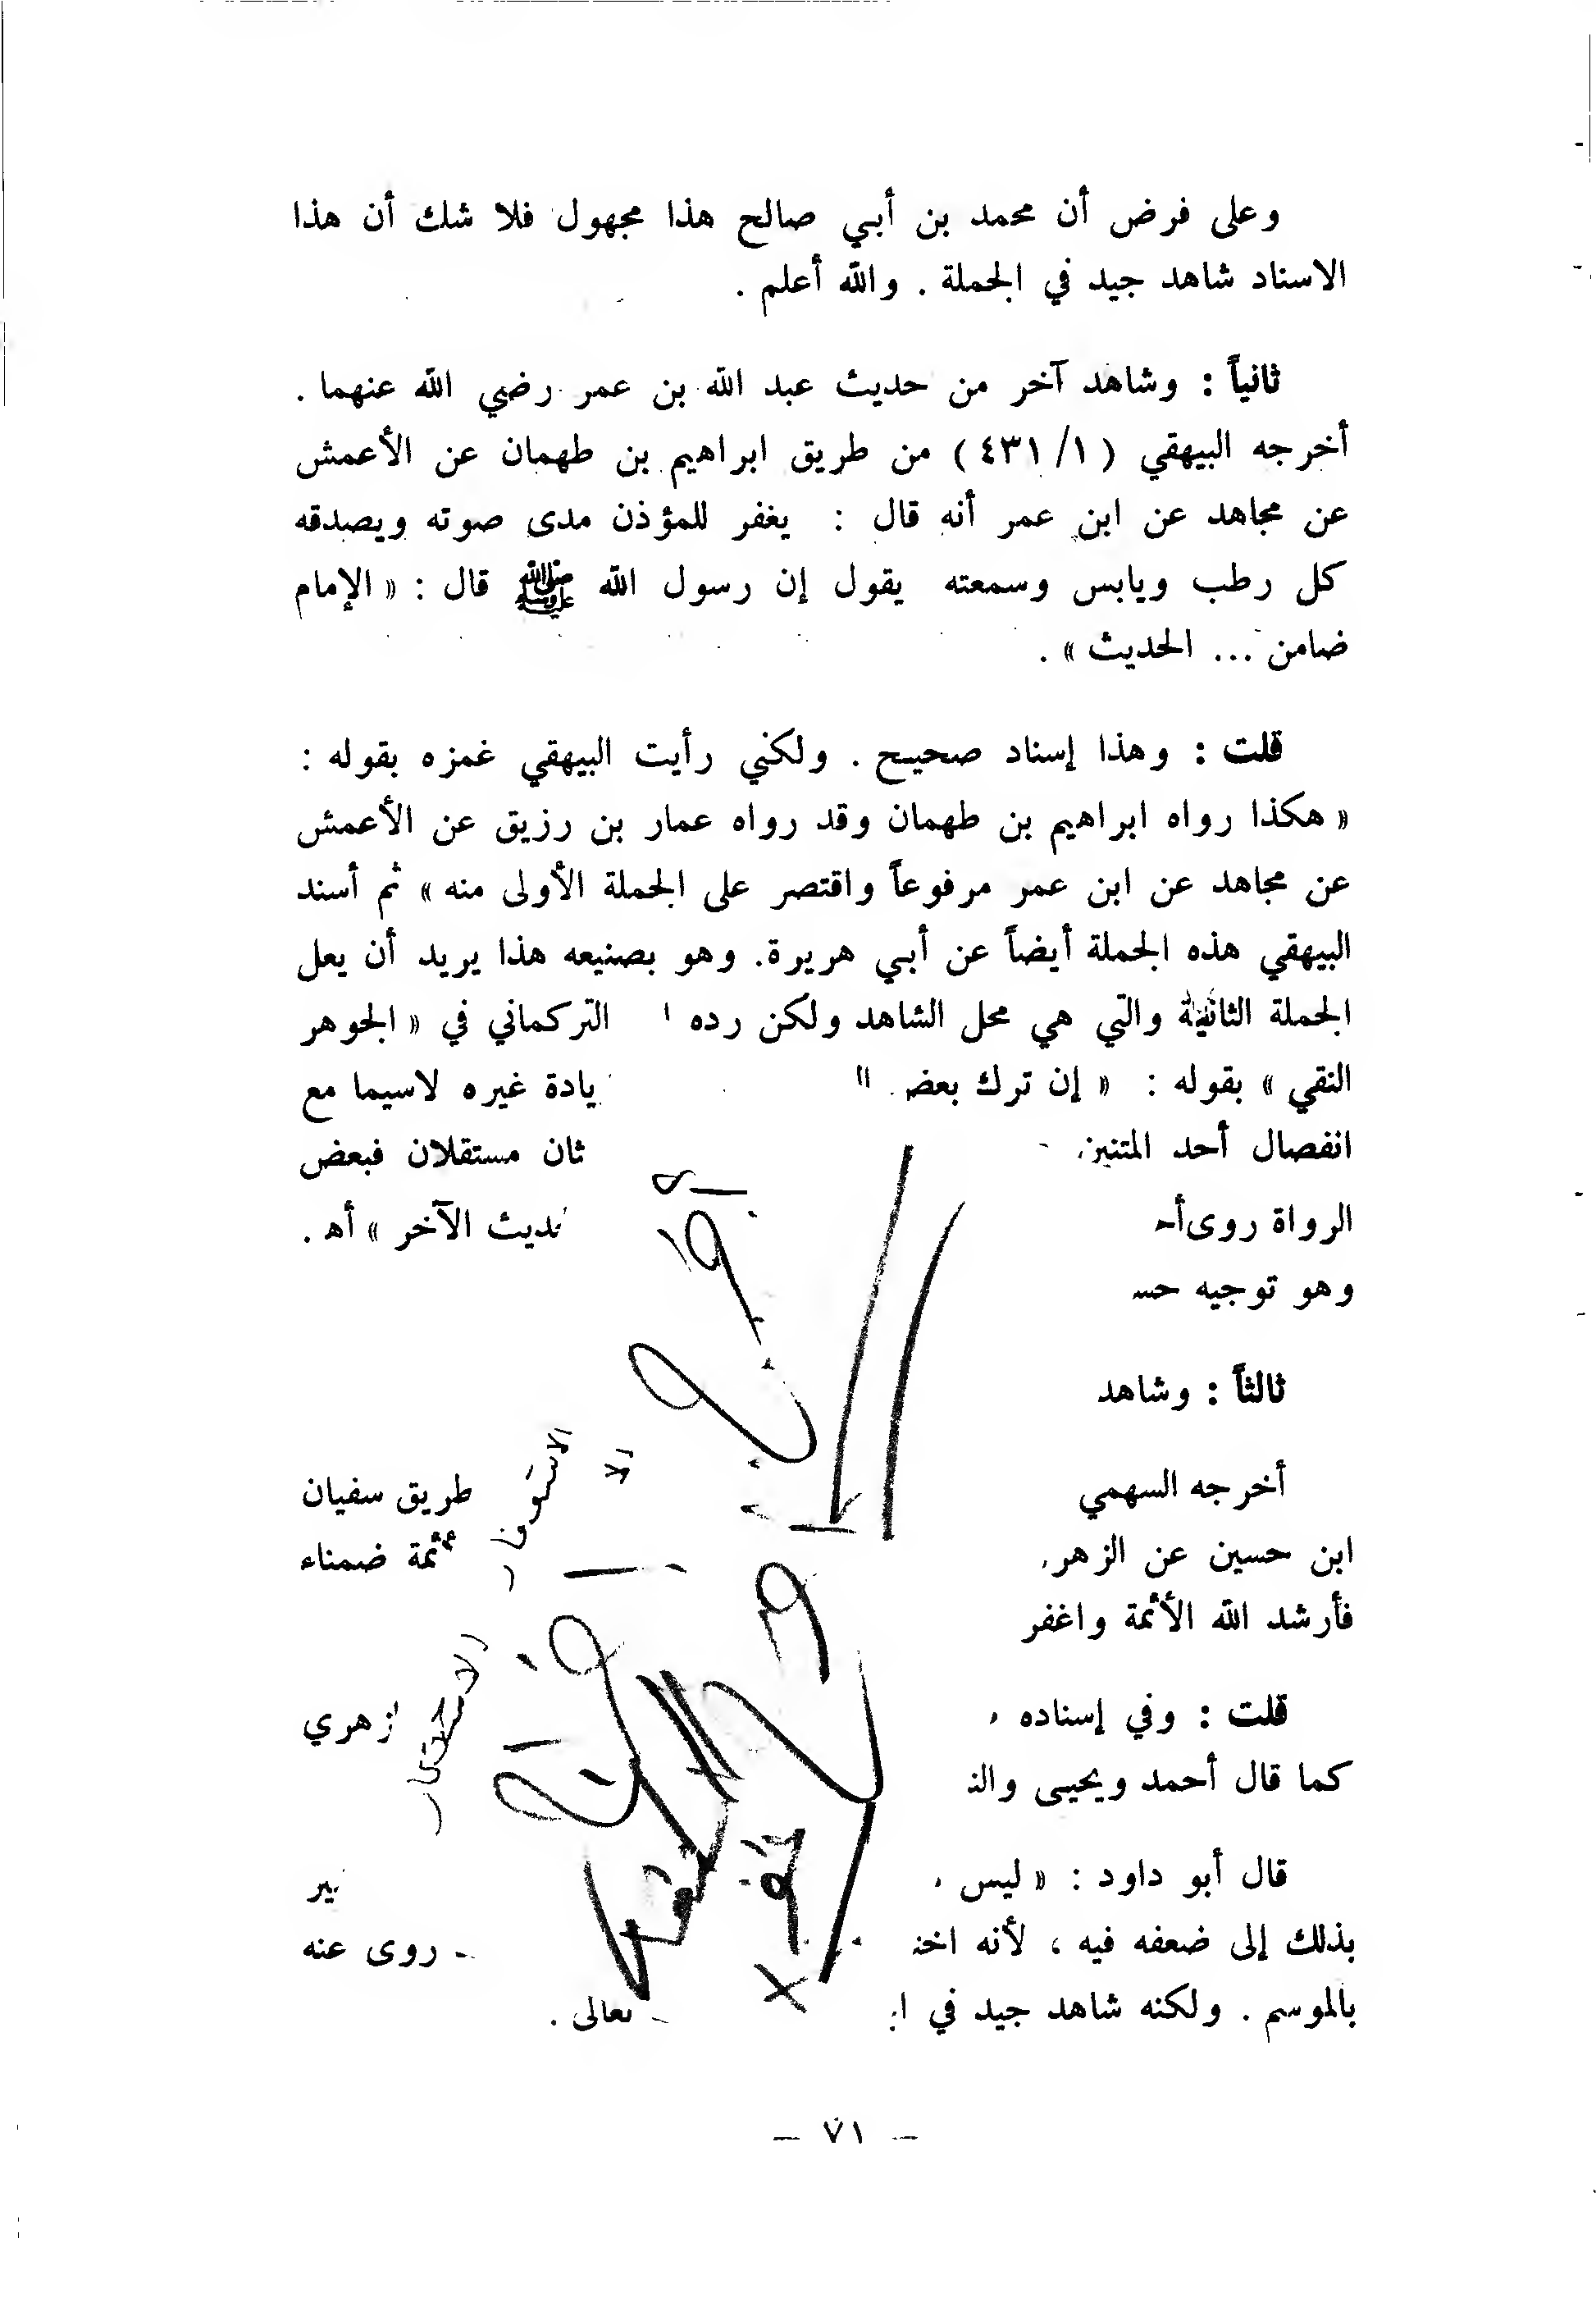 وعلى فرض أن محمد بن أبي صالح هذا مجهول فلا شك أن هذا
الاسناد شاهد جيد في الجملة . والله أعلم .
ثانياً : وشاهد آخر من حديث عبد الله بن عمر رضي الله عنهما .
أخرجه البيهقي ( ٤٣١/١ ) من طريق ابراهيم بن طهمان عن الأعمش
عن مجاهد عن ابن عمر أنه قال : يغفر للمؤذن مدى صوته ويصدقه
كل رطب ويابس وسمعته يقول إن رسول الله ﷺ قال : « الإمام
ضامن ... الحديث » .
قلت : وهذا إسناد صحيح . ولكني رأيت البيهقي غمزه بقوله :
« هكذا رواه ابراهيم بن طهمان وقد رواه عمار بن رزيق عن الأعمش
عن مجاهد عن ابن عمر مرفوعاً واقتصر على الجملة الأولى منه » ثم أسند
البيهقي هذه الجملة أيضاً عن أبي هريرة. وهو بصنيعه هذا يريد أن يعل
الجملة الثانية والتي هي محل الشاهد ولكن رده التركماني في « الجوهر
النقي » بقوله : « إن ترك بعض يادة غيره لاسيما مع
انفصال أحد المتنين ثان مستقلان فبعض
الرواة روى ديث الآخر » أه .
وهو توجيه حس
ثالثاً : وشاهد
أخرجه السهمي طريق سفيان
ابن حسين عن الزهر أئمة ضمناء
فأرشد الله الأئمة واغفر
قلت : وفي إسناده زهري
كما قال أحمد ويحيى والن
قال أبو داود : « ليس ير
بذلك إلى ضعفه فيه ، لأنه اخ روى عنه
بالموسم . ولكنه شاهد جيد في ا تعالى .
– ٧١ –